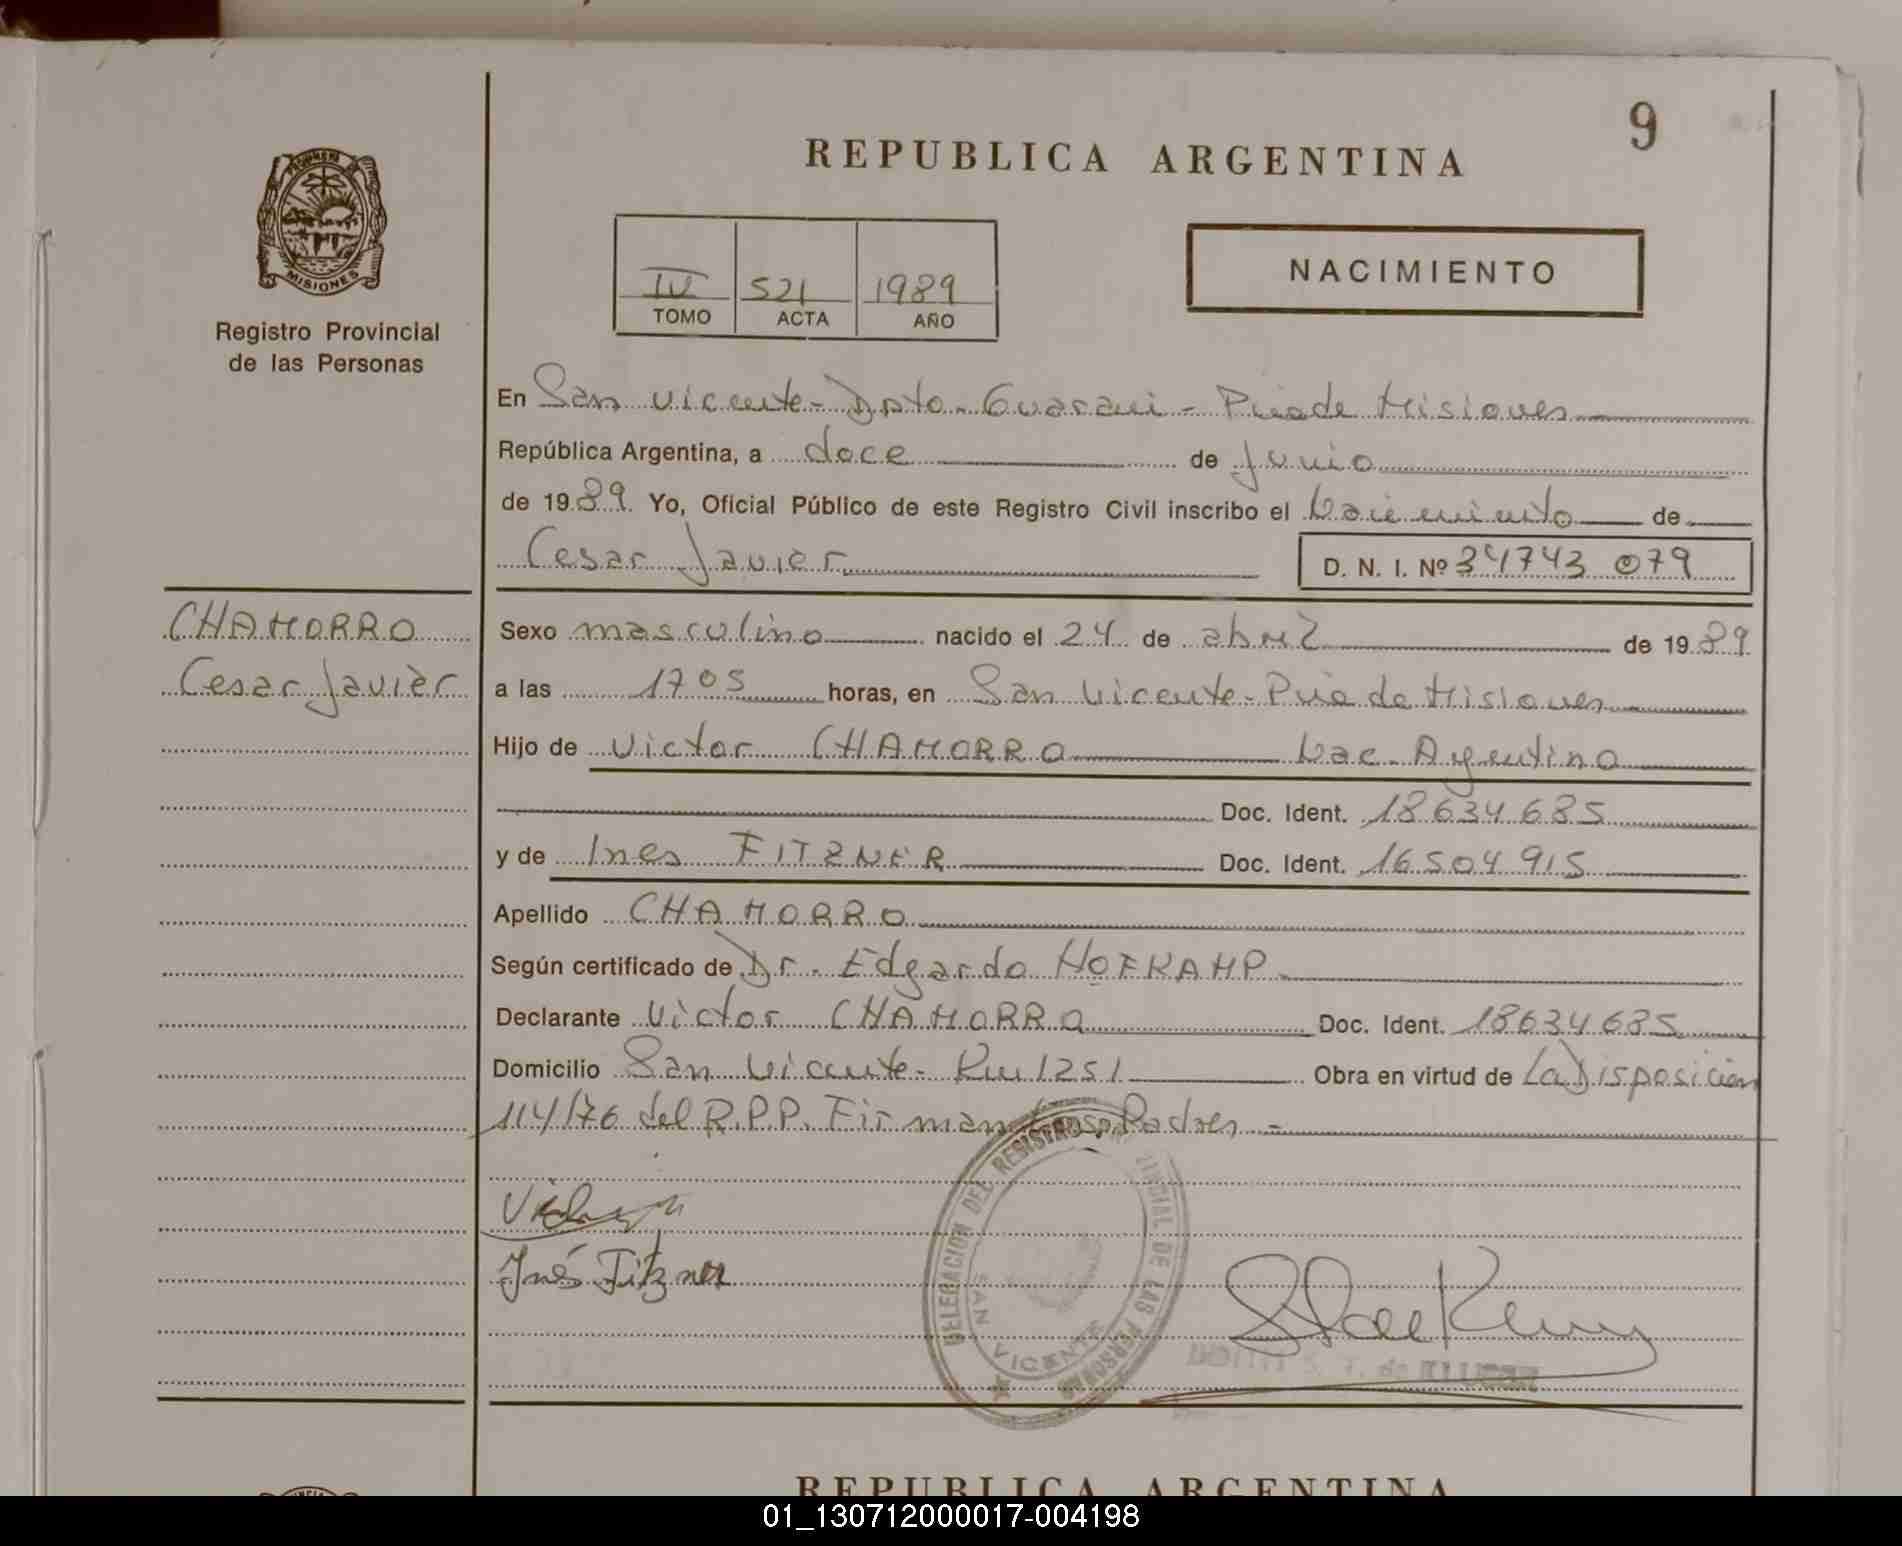 9
REPUBLICA ARGENTINA
PROVINCIA
MISIONES
Registro Provincial
de las Personas
IV 521 1989
TOMO ACTA AÑO
NACIMIENTO
En San Vicente - Dpto. Guarani - Pcia de Misiones
República Argentina, a doce de Junio
de 1989 Yo, Oficial Público de este Registro Civil inscribo el Nacimiento de
Cesar Javier D. N. I. Nº 34743 079
CHAMORRO
Cesar Javier
Sexo masculino nacido el 24 de abril de 1989
a las 1705 horas, en San Vicente - Pcia de Misiones
Hijo de Victor CHAMORRO Nac. Argentino
Doc. Ident. 18634685
y de Ines FITZNER Doc. Ident. 16504915
Apellido CHAMORRO
Según certificado de Dr. Edgardo HOFKAMP
Declarante Victor CHAMORRO Doc. Ident. 18634685
Domicilio San Vicente - Km 1251 Obra en virtud de La Disposicion
114/76 del R.P.P. Firman los Padres -
Inés Fitzner
DELEGACION DEL REGISTRO PROVINCIAL DE LAS PERSONAS
SAN VICENTE
REPUBLICA ARGENTINA
01_130712000017-004198